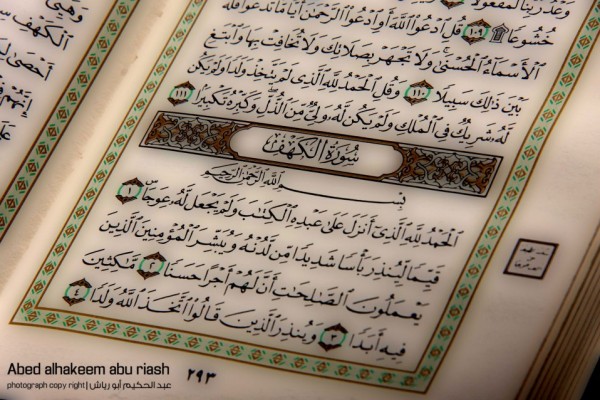 وَعْدُ رَبِّنَا لَمَفْعُولًا
خُشُوعًا ۩ ١٠٩ قُلِ ادْعُوا اللَّهَ أَوِ ادْعُوا الرَّحْمَٰنَ أَيًّا مَا تَدْعُوا فَلَهُ
الْأَسْمَاءُ الْحُسْنَىٰ وَلَا تَجْهَرْ بِصَلَاتِكَ وَلَا تُخَافِتْ بِهَا وَابْتَغِ
بَيْنَ ذَٰلِكَ سَبِيلًا ١١٠ وَقُلِ الْحَمْدُ لِلَّهِ الَّذِي لَمْ يَتَّخِذْ وَلَدًا وَلَمْ يَكُن
لَّهُ شَرِيكٌ فِي الْمُلْكِ وَلَمْ يَكُن لَّهُ وَلِيٌّ مِّنَ الذُّلِّ وَكَبِّرْهُ تَكْبِيرًا ١١١
سُورَةُ الْكَهْفِ
بِسْمِ اللَّهِ الرَّحْمَٰنِ الرَّحِيمِ
الْحَمْدُ لِلَّهِ الَّذِي أَنزَلَ عَلَىٰ عَبْدِهِ الْكِتَٰبَ وَلَمْ يَجْعَل لَّهُ عِوَجًا ۜ ١
قَيِّمًا لِّيُنذِرَ بَأْسًا شَدِيدًا مِّن لَّدُنْهُ وَيُبَشِّرَ الْمُؤْمِنِينَ الَّذِينَ
يَعْمَلُونَ الصَّٰلِحَٰتِ أَنَّ لَهُمْ أَجْرًا حَسَنًا ٢ مَّٰكِثِينَ
فِيهِ أَبَدًا ٣ وَيُنذِرَ الَّذِينَ قَالُوا اتَّخَذَ اللَّهُ وَلَدًا ٤
٢٩٣
الْكَهْفِ
Abed alhakeem abu riash
photograph copy right | عبد الحكيم أبو رياش